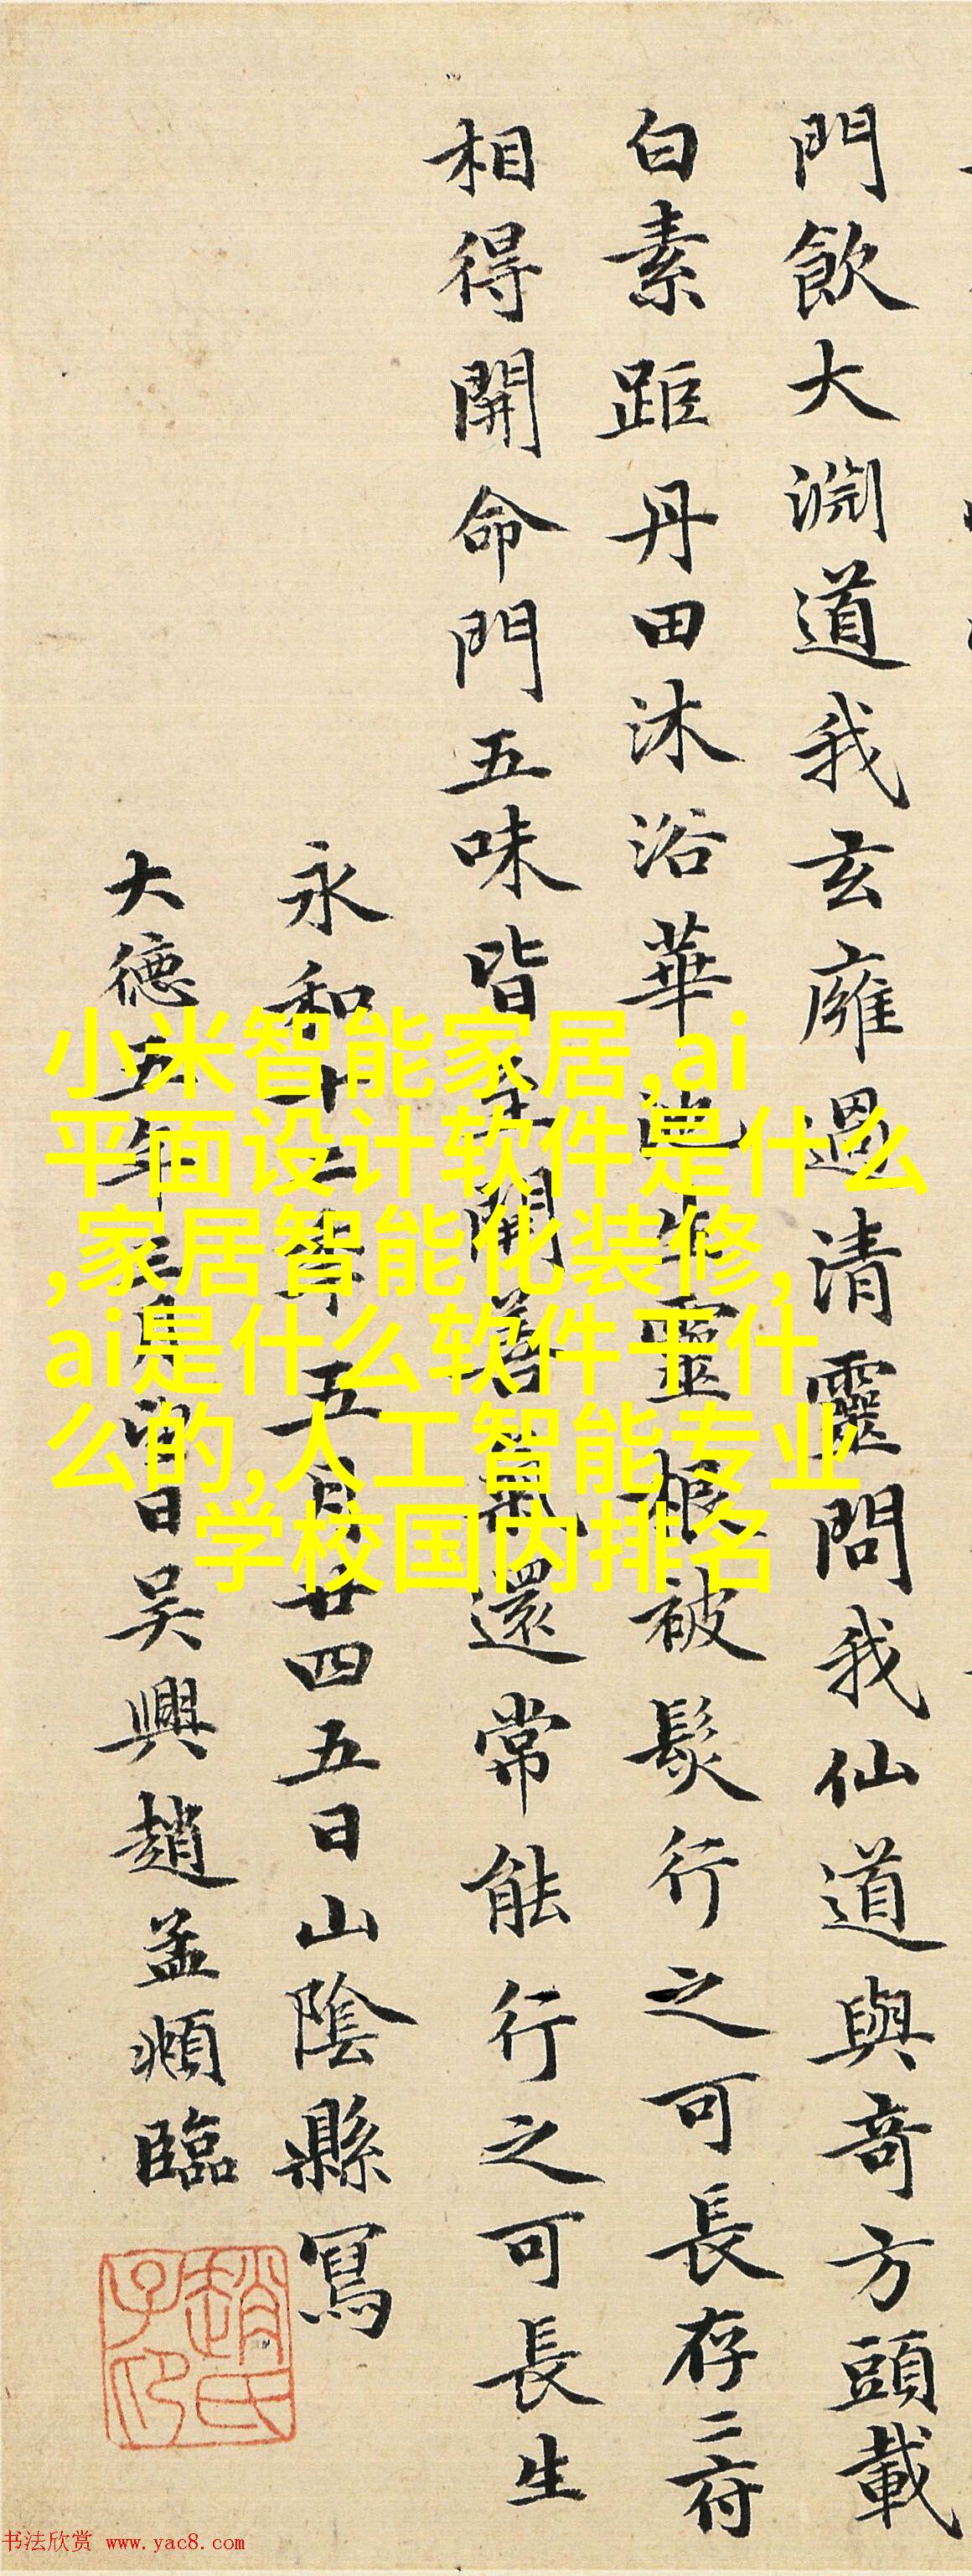 門飲大淵道我玄廱過清靈問我仙道與奇方頭載
白素距丹田沐浴華池生靈根被髮行之可長存二府
相得開命門五味皆至開善氣還常能行之可長生
永和十二年五月廿四五日山陰縣寫
大德五年二月日吴興趙孟頫臨
趙氏子印
小米智能家居,ai
平面设计软件是什么
,家居智能化装修,
ai是什么软件干什
么的,人工智能专业
学校国内排名
书法欣赏 www.yac8.com